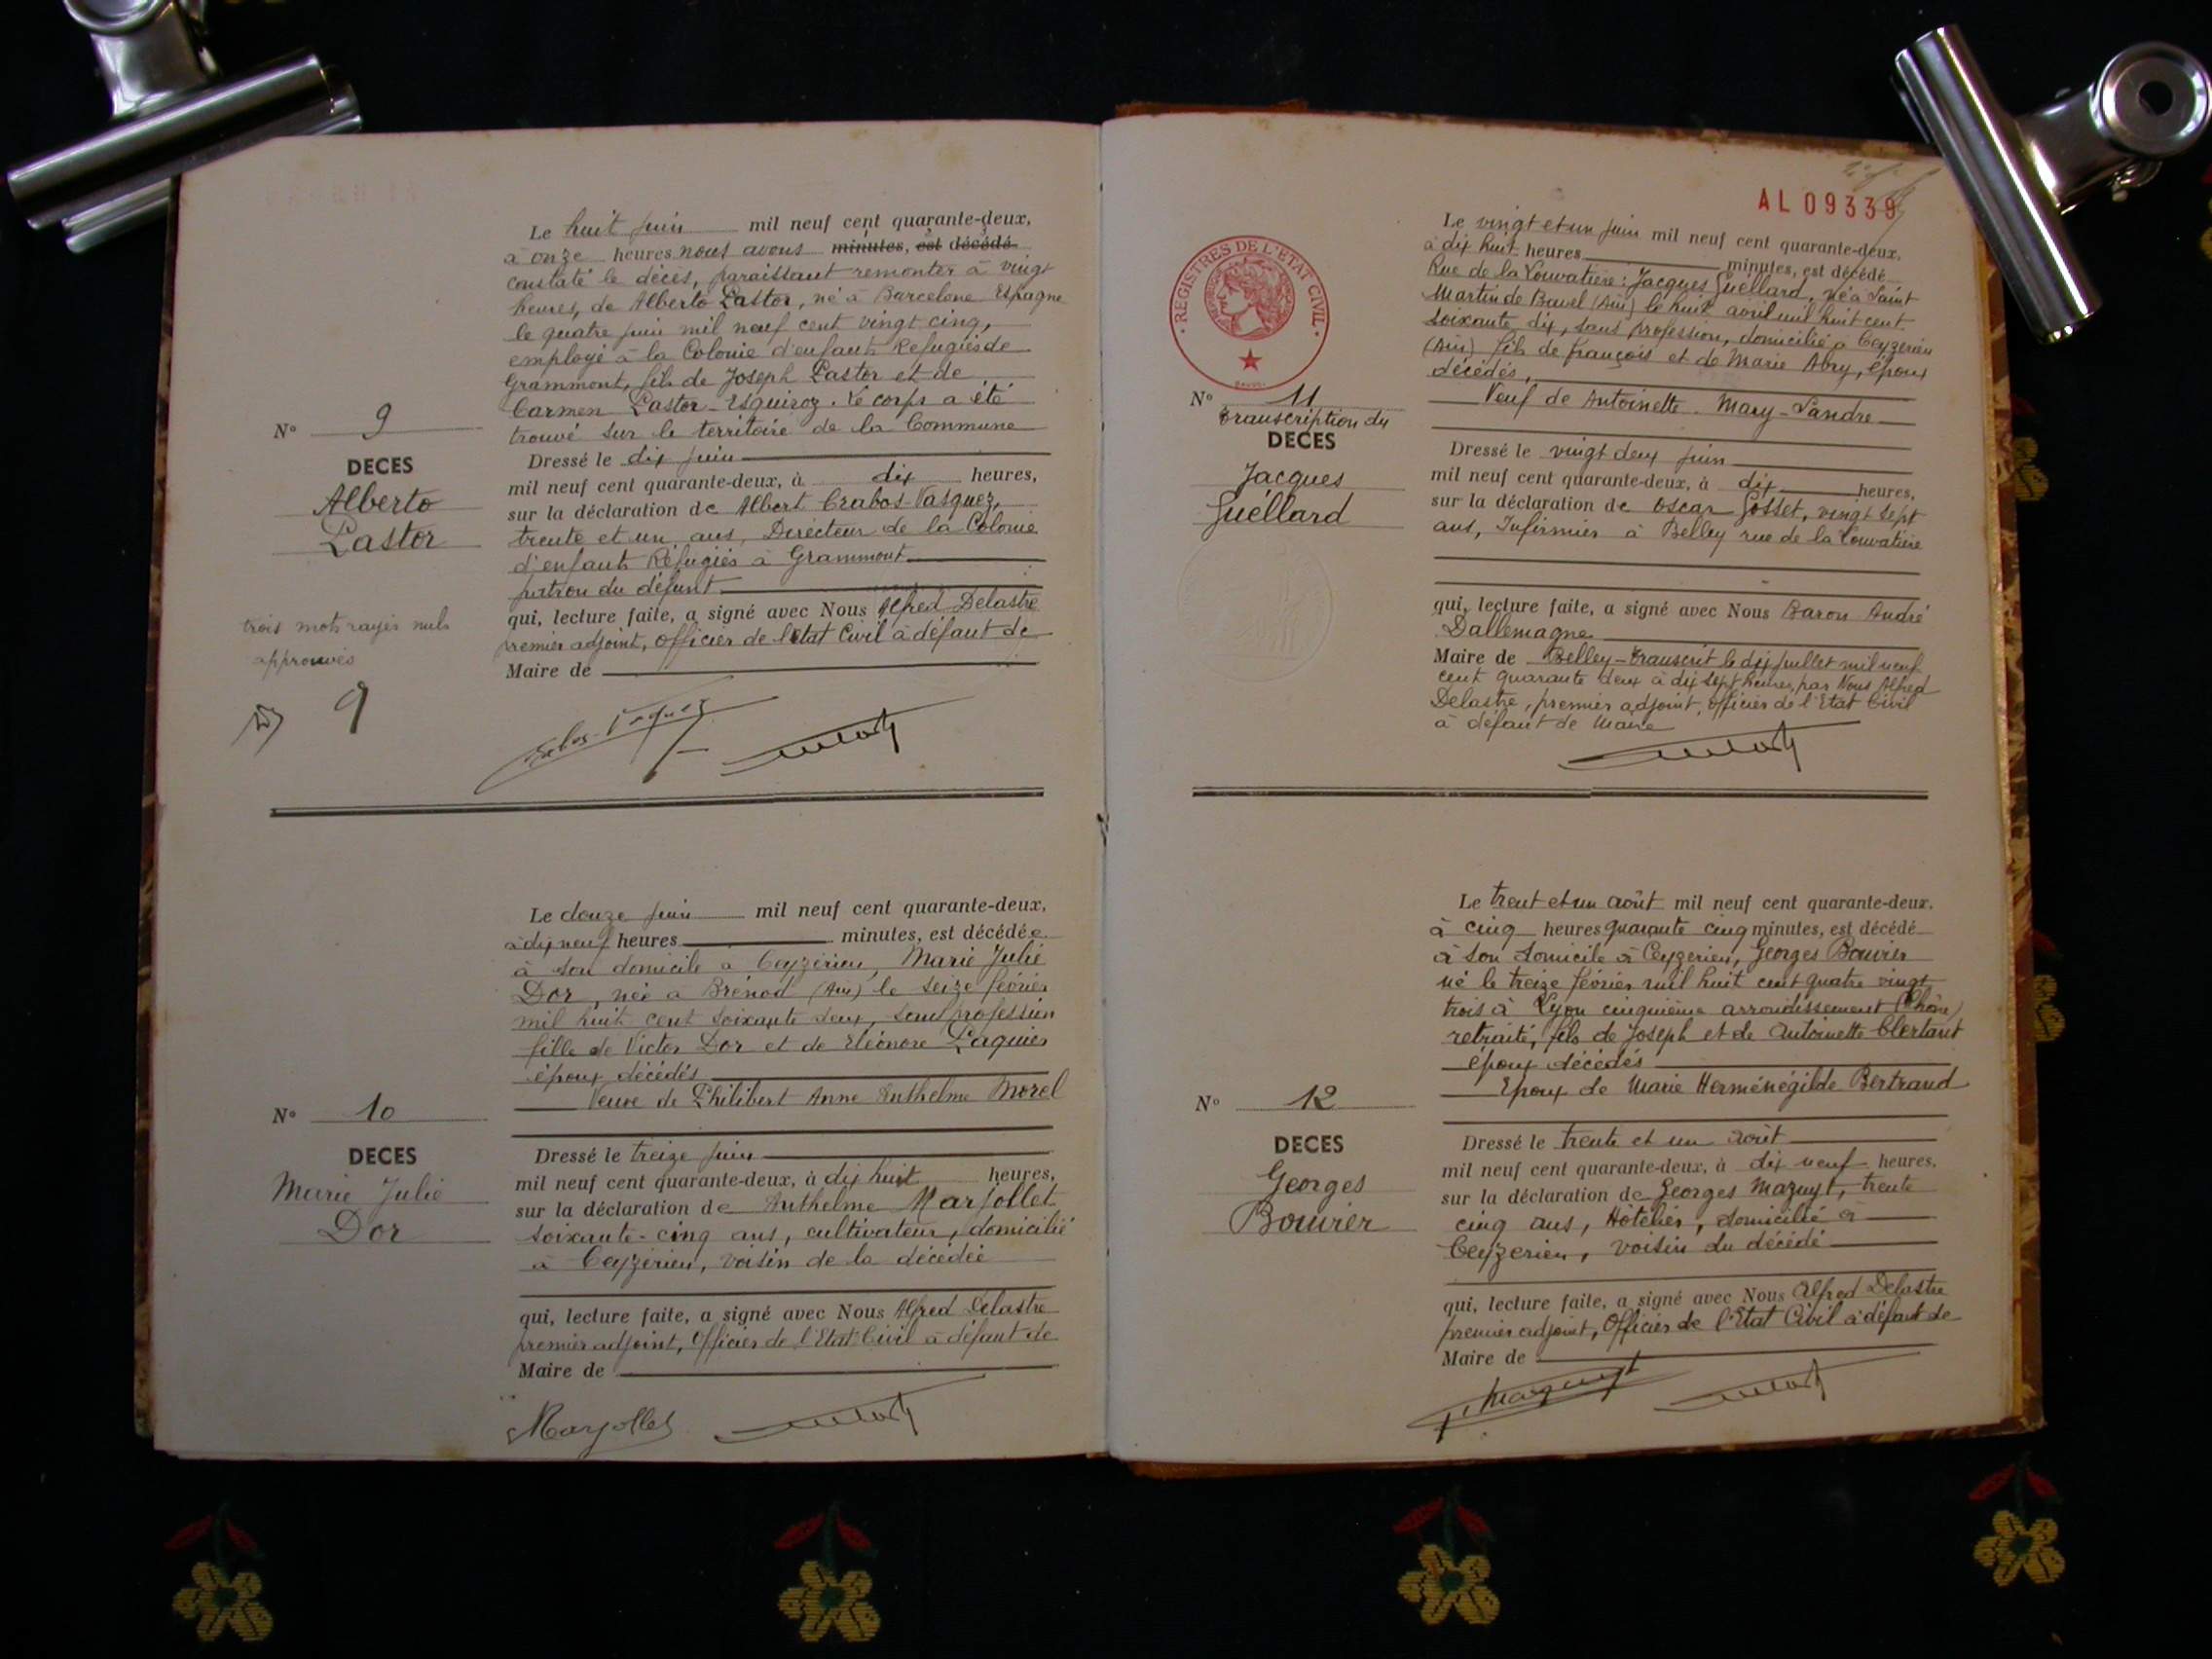 Le huit juin mil neuf cent quarante-deux,
à onze heures nous avons minutes, est décédé
constaté le décès, paraissant remonter à vingt
heures, de Alberto Pastor, né à Barcelone Espagne
le quatre juin mil neuf cent vingt cinq,
employé à la Colonie d'enfants Refugiés de
Grammont, fils de Joseph Pastor et de
Carmen Pastor-Esquiroz. Le corps a été
trouvé sur le territoire de la Commune
N° 9
DECES
Alberto
Pastor
Dressé le dix juin
mil neuf cent quarante-deux, à dix heures,
sur la déclaration de Albert Crabos-Vasquez,
trente et un ans, Directeur de la Colonie
d'enfants Réfugiés à Grammont
patron du défunt
qui, lecture faite, a signé avec Nous Alfred Delastre
premier adjoint, officier de l'Etat Civil à défaut de
Maire de
trois mots rayés nuls
approuvés
9
Le douze juin mil neuf cent quarante-deux,
à dix neuf heures minutes, est décédée
à son domicile à Ceyzérieu, Marie Julie
Dor, née à Brénod (Ain) le seize février
mil huit cent soixante deux, sans profession
fille de Victor Dor et de Eléonore Paquier
époux décédés
Veuve de Philibert Anne Anthelme Morel
N° 10
DECES
Marie Julie
Dor
Dressé le treize juin
mil neuf cent quarante-deux, à dix huit heures,
sur la déclaration de Anthelme Marjollet
soixante-cinq ans, cultivateur, domicilié
à Ceyzérieu, voisin de la décédée
qui, lecture faite, a signé avec Nous Alfred Delastre
premier adjoint, Officier de l'Etat Civil à défaut de
Maire de
Marjollet
AL 09339
REGISTRES DE L'ETAT CIVIL
Le vingt et un juin mil neuf cent quarante-deux,
à dix huit heures minutes, est décédé
Rue de la Louvatière: Jacques Guëllard, né à Saint
Martin de Bavel (Ain) le huit avril mil huit cent
soixante dix, sans profession, domicilié à Ceyzerieu
(Ain) fils de François et de Marie Abry, époux
décédés,
Veuf de Antoinette Mary-Landre
N° 11
transcription du
DECES
Jacques
Guëllard
Dressé le vingt deux juin
mil neuf cent quarante-deux, à dix heures,
sur la déclaration de Oscar Gosset, vingt sept
ans, Infirmier à Belley rue de la Louvatière
qui, lecture faite, a signé avec Nous Baron André
Dallemagne
Maire de Belley-transcrit le dix juillet mil neuf
cent quarante deux à dix sept heures, par Nous Alfred
Delastre, premier adjoint, Officier de l'Etat Civil
à défaut de Maire
Le trent et un août mil neuf cent quarante-deux.
à cinq heures quarante cinq minutes, est décédé
à son domicile à Ceyzerieu, Georges Bouvier
né le treize février mil huit cent quatre vingt
trois à Lyon cinquième arrondissement (Rhône)
retraité, fils de Joseph et de Antoinette Clertant
époux décédés
Epoux de Marie Herménégilde Bertrand
N° 12
DECES
Georges
Bouvier
Dressé le trente et un août
mil neuf cent quarante-deux, à dix neuf heures.
sur la déclaration de Georges Mazuyt, trente
cinq ans, Hôtelier, domicilié à
Ceyzerieu, voisin du décédé
qui, lecture faite, a signé avec Nous Alfred Delastre
premier adjoint, Officier de l'Etat Civil à défaut de
Maire de
Mazuyt